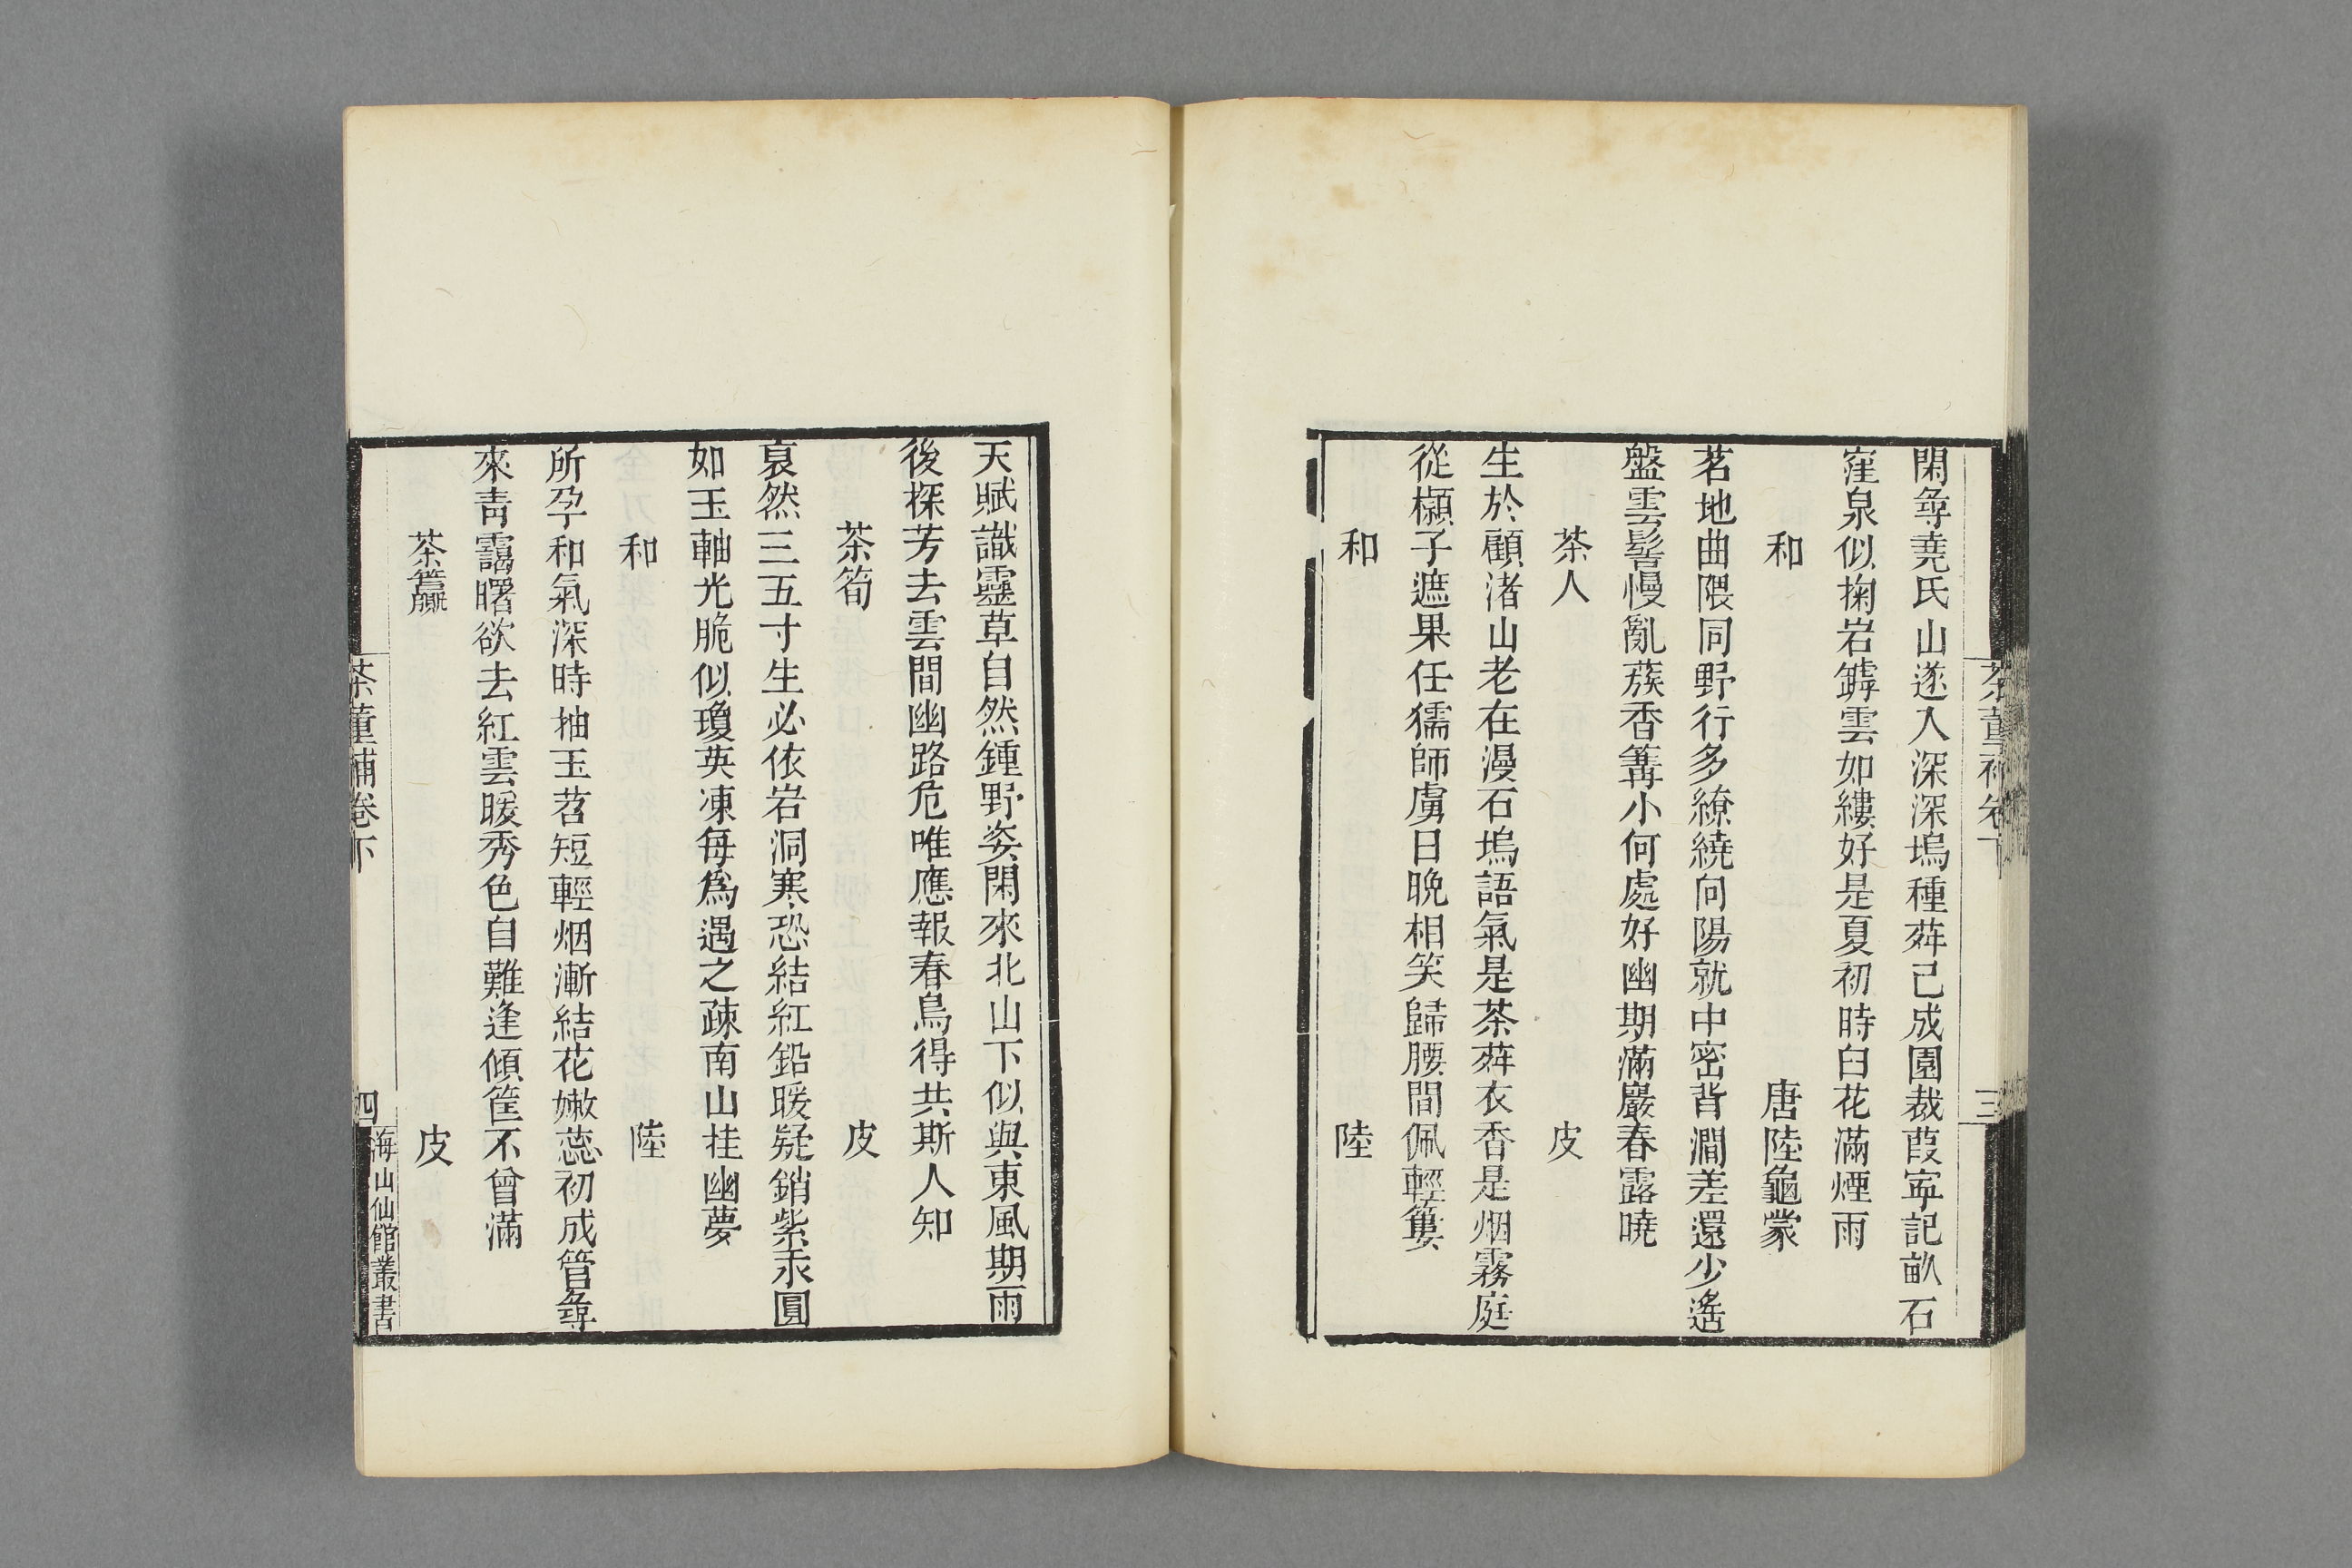 閑尋堯氏山遂入深深塢種荈已成園栽葭寧記畝石
窪泉似掬岩罅雲如縷好是夏初時白花滿煙雨
和 唐陸龜蒙
茗地曲隈同野行多繚繞向陽就中密背澗差還少遙
盤雲髻慢亂蔟香篝小何處好幽期滿巖春露曉
茶人 皮
生於顧渚山老在漫石塢語氣是茶荈衣香是烟霧庭
從㰚子遮果任獳師虜日晚相笑歸腰間佩輕簍
和 陸
茶董補卷下 三
天賦識靈草自然鍾野姿閑來北山下似與東風期雨
後探芳去雲間幽路危唯應報春鳥得共斯人知
茶筍 皮
裒然三五寸生必依岩洞寒恐結紅鉛暖疑銷紫汞圓
如玉軸光脆似瓊英凍每爲遇之疎南山挂幽夢
和 陸
所孕和氣深時抽玉苕短輕烟漸結花嫩蕊初成管尋
來青靄曙欲去紅雲暖秀色自難逢傾筐不曾滿
茶籯 皮
茶董補卷下 四 海山仙館叢書